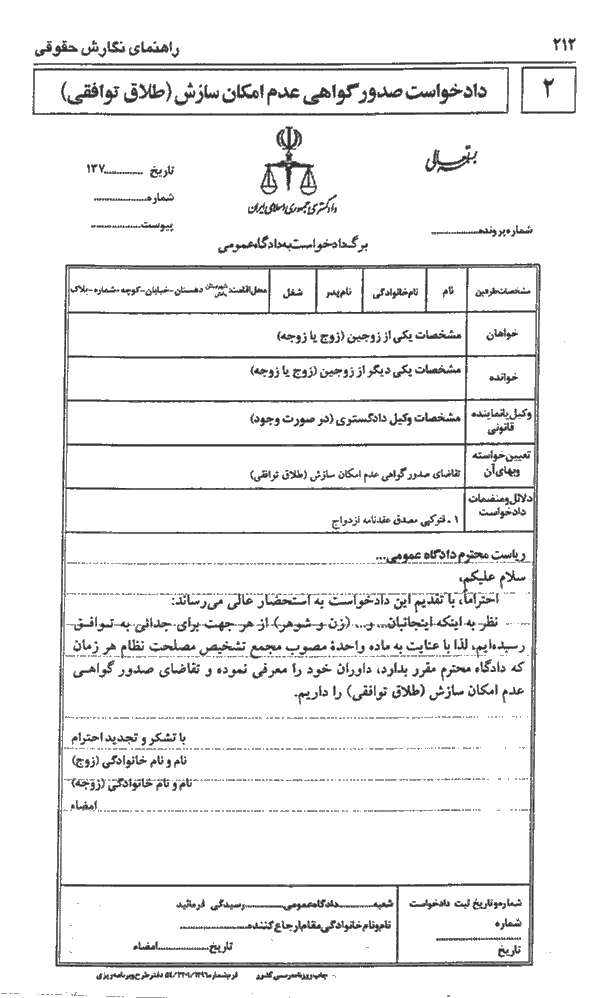 ۲۱۲
راهنمای نگارش حقوقی
۲
دادخواست صدور گواهی عدم امکان سازش (طلاق توافقی)
بسمه تعالی
دادگستری جمهوری اسلامی ایران
تاریخ ............۱۳۷
شماره..................
پیوست..................
شماره پرونده..................
برگ دادخواست به دادگاه عمومی
مشخصات طرفین نام نام خانوادگی نام پدر شغل محل اقامت: شهرستان بخش دهستان-خیابان-کوچه-شماره-پلاک
خواهان مشخصات یکی از زوجین (زوج یا زوجه)
خوانده مشخصات یکی دیگر از زوجین (زوج یا زوجه)
وکیل یا نماینده قانونی مشخصات وکیل دادگستری (در صورت وجود)
تعیین خواسته و بهای آن تقاضای صدور گواهی عدم امکان سازش (طلاق توافقی)
دلائل و منضمات دادخواست ۱ ـ فتوکپی مصدق عقدنامه ازدواج
ریاست محترم دادگاه عمومی...
سلام علیکم،
احتراماً، با تقدیم این دادخواست به استحضار عالی می‌رساند:
نظر به اینکه اینجانبان... و... (زن و شوهر) از هر جهت برای جدائی به توافق
رسیده‌ایم، لذا با عنایت به ماده واحدهٔ مصوب مجمع تشخیص مصلحت نظام هر زمان
که دادگاه محترم مقرر بدارد، داوران خود را معرفی نموده و تقاضای صدور گواهی
عدم امکان سازش (طلاق توافقی) را داریم.
با تشکر و تجدید احترام
نام و نام خانوادگی (زوج)
نام و نام خانوادگی (زوجه)
امضاء
شماره و تاریخ ثبت دادخواست
شماره
تاریخ
شعبه............دادگاه عمومی............رسیدگی فرمائید
نام و نام خانوادگی مقام ارجاع کننده..................
تاریخ............امضاء
چاپ روزنامه رسمی کشور